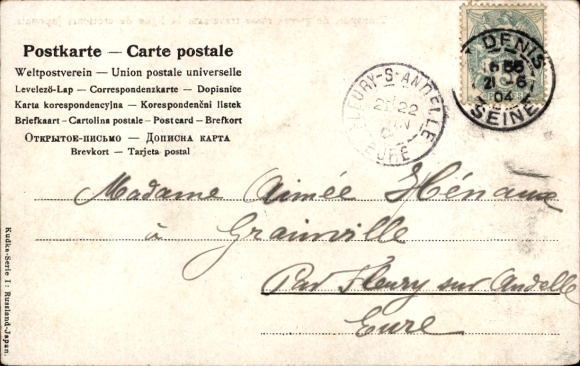 Postkarte — Carte postale
Weltpostverein — Union postale universelle
Levelező-Lap — Correspondenzkarte — Dopisnice
Karta korespondencyjna — Korespondenční listek
Briefkaart - Cartolina postale - Postcard — Brefkort
Открытое-письмо — Дописна карта
Brevkort — Tarjeta postal
FLEURY-S-ANDELLE
22
EURE
DENIS
04
SEINE
Madame Aimée Hénaux
à Grainville
Par Fleury sur Andelle
Eure
Kudke-Serie I: Russland-Japan.